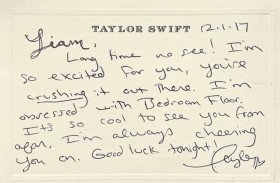 TAYLOR SWIFT 12.1.17
Liam,
Long time no see! I'm
so excited for you, you're
crushing it out there. I'm
obsessed with Bedroom Floor.
It's so cool to see you from
afar, I'm always cheering
you on. Good luck tonight!
Taylor